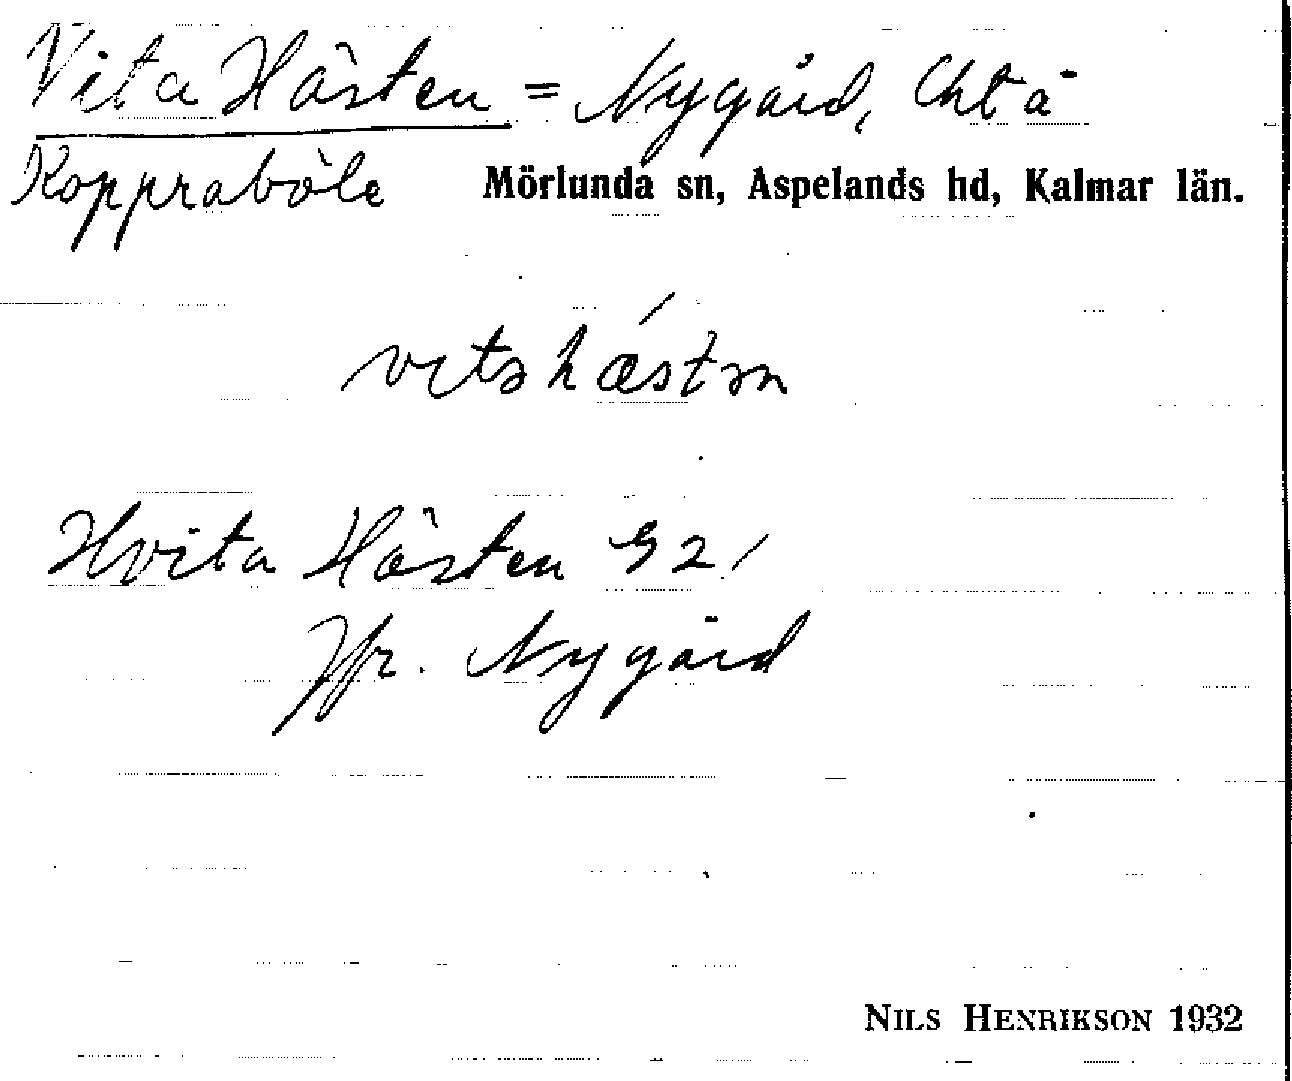 Vita Hästen = Nygård, Cht å
Koppraböle Mörlunda sn, Aspelands hd, Kalmar län.
vitahǽstən
Hvita Hästen G2/
Jfr. Nygård
NILS HENRIKSON 1932